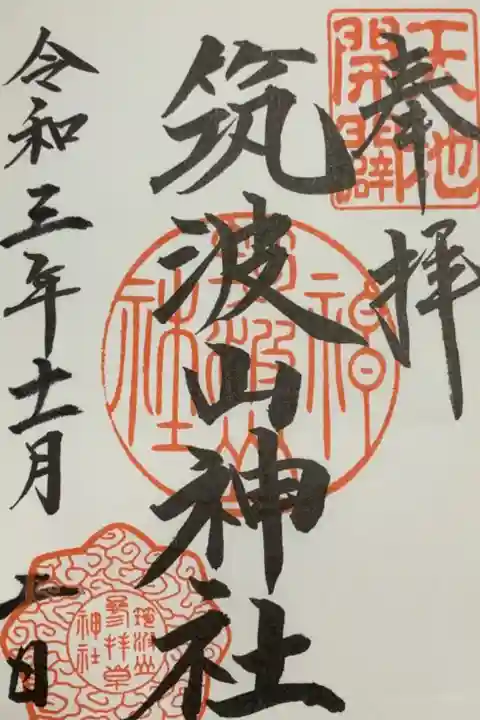 奉拝
天地
開闢
筑波山神社
筑波山
神社
令和三年十一月
日
筑波山
参拝章
神社